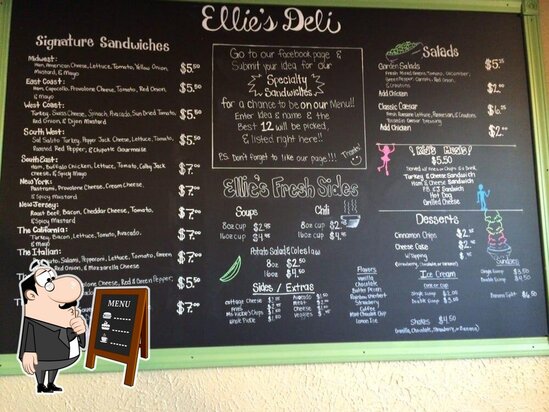 Ellie's Deli
Signature Sandwiches
Midwest:
Ham, American Cheese, Lettuce, Tomato, Yellow Onion,
Mustard, & Mayo
$5.50
East Coast:
Ham, Capicollo, Provolone Cheese, Tomato, Red Onion,
& Mayo
$5.50
West Coast:
Turkey, Swiss Cheese, Spinach, Avocado, Sun Dried Tomato,
Red Onion, & Dijon Mustard
$5.50
South West:
Turkey, Pepper Jack Cheese, Lettuce, Tomato,
Roasted Red Pepper, & Chipotle Gourmaise
$5.50
SouthEast:
Ham, Buffalo Chicken, Lettuce, Tomato, Colby Jack
cheese, & Spicy Mayo
$7.00
New York:
Pastrami, Provolone Cheese, Cream Cheese
& Spicy Mustard
$7.00
New Jersey:
Roast Beef, Bacon, Cheddar Cheese, Tomato,
& Spicy Mustard
$7.00
The California:
Turkey, Bacon, Lettuce, Tomato, Avocado,
& Mayo
$7.00
The Italian:
Salami, Pepperoni, Provolone Cheese, Tomato,
Red Onion, & Mozzarella Cheese
$7.00
Provolone Cheese, Red & Green Pepper,
$5.50
$7.00
MENU
Go to our facebook page &
Submit your idea for our
Specialty
Sandwiches
for a chance to be on our Menu!!
Enter idea & name & the
Best 12 will be picked,
& listed right here!!
P.S. Don't Forget to like our page!!!
Thanks!
Ellie's Fresh Sides
Soups
8oz cup $2.95
16oz cup $4.95
Chili
8oz cup $2.95
16oz cup $4.95
Potato Salad & Coleslaw
8oz $2.50
16oz $4.50
Sides / Extras
Cottage Cheese
Fries
Ms Vickie's Chips
Whole Pickle
Avocado
Meat
Cheese
Veggies
Salads
Garden Salads $5.25
Fresh Mixed Greens, Tomato, Cucumber,
Green Pepper, Carrots, Red Onion,
& Croutons
Add Chicken $2.00
Classic Caesar $6.25
Fresh Romaine Lettuce, Parmesan, & Croutons
Add Chicken $2.00
Kid's Meals!
$5.50
Turkey & Cheese Sandwich
Ham & Cheese Sandwich
P.B. & J Sandwich
Hot Dog
Grilled Cheese
Desserts
Cinnamon Chips $2.00
Cheese Cake $2.50
w/Topping
Ice Cream
Single Scoop
Double Scoop
Shakes $4.50
(Vanilla, Chocolate, Strawberry, or Banana)
Sundaes
Single Scoop $3.50
Double Scoop $4.50
Banana Split $6.50
Flavors
Vanilla
Chocolate
Butter Pecan
Rainbow Sherbert
Strawberry
Coffee
Mint Chocolate Chip
Lemon Ice